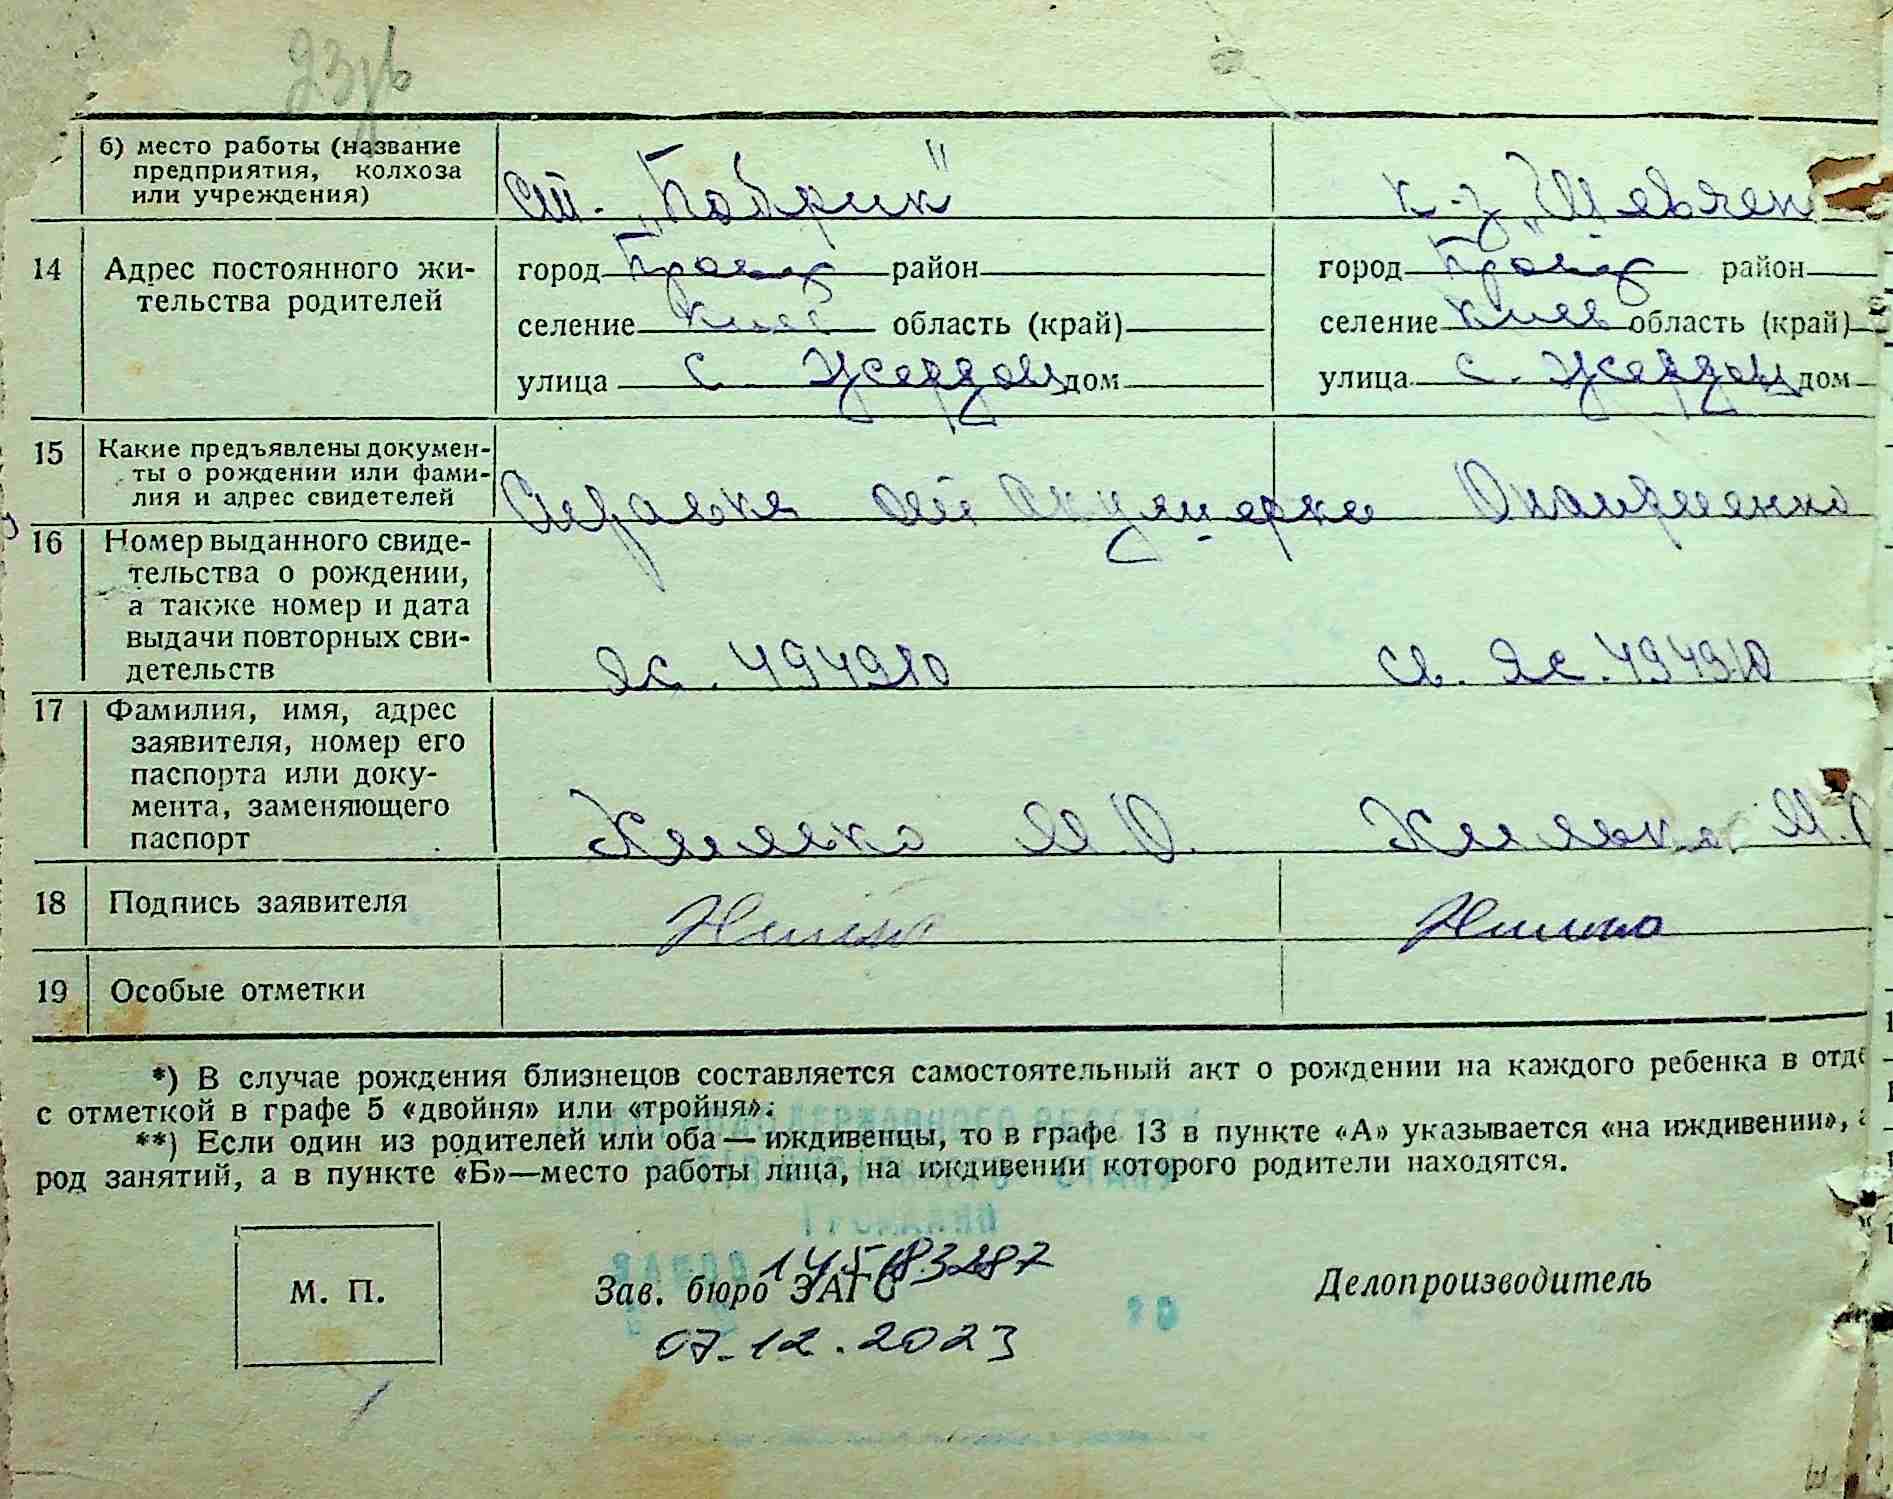 б) место работы (название
предприятия, колхоза
или учреждения)
ст. „Бобрик" к-з „Шевчен
14 Адрес постоянного жи-
тельства родителей
город район город район
селение Киев область (край) селение Киев область (край)
улица с. Жердова дом улица с. Жердова дом
15 Какие предъявлены докумен-
ты о рождении или фами-
лия и адрес свидетелей
Справка от акушерки
16 Номер выданного свиде-
тельства о рождении,
а также номер и дата
выдачи повторных сви-
детельств
ЯС. 494910 св. ЯС. 494910
17 Фамилия, имя, адрес
заявителя, номер его
паспорта или доку-
мента, заменяющего
паспорт
М. О. М.
18 Подпись заявителя
19 Особые отметки
*) В случае рождения близнецов составляется самостоятельный акт о рождении на каждого ребенка в отде
с отметкой в графе 5 «двойня» или «тройня».
**) Если один из родителей или оба — иждивенцы, то в графе 13 в пункте «А» указывается «на иждивении», а
род занятий, а в пункте «Б»—место работы лица, на иждивении которого родители находятся.
14583287
М. П. Зав. бюро ЗАГС Делопроизводитель
07.12.2023